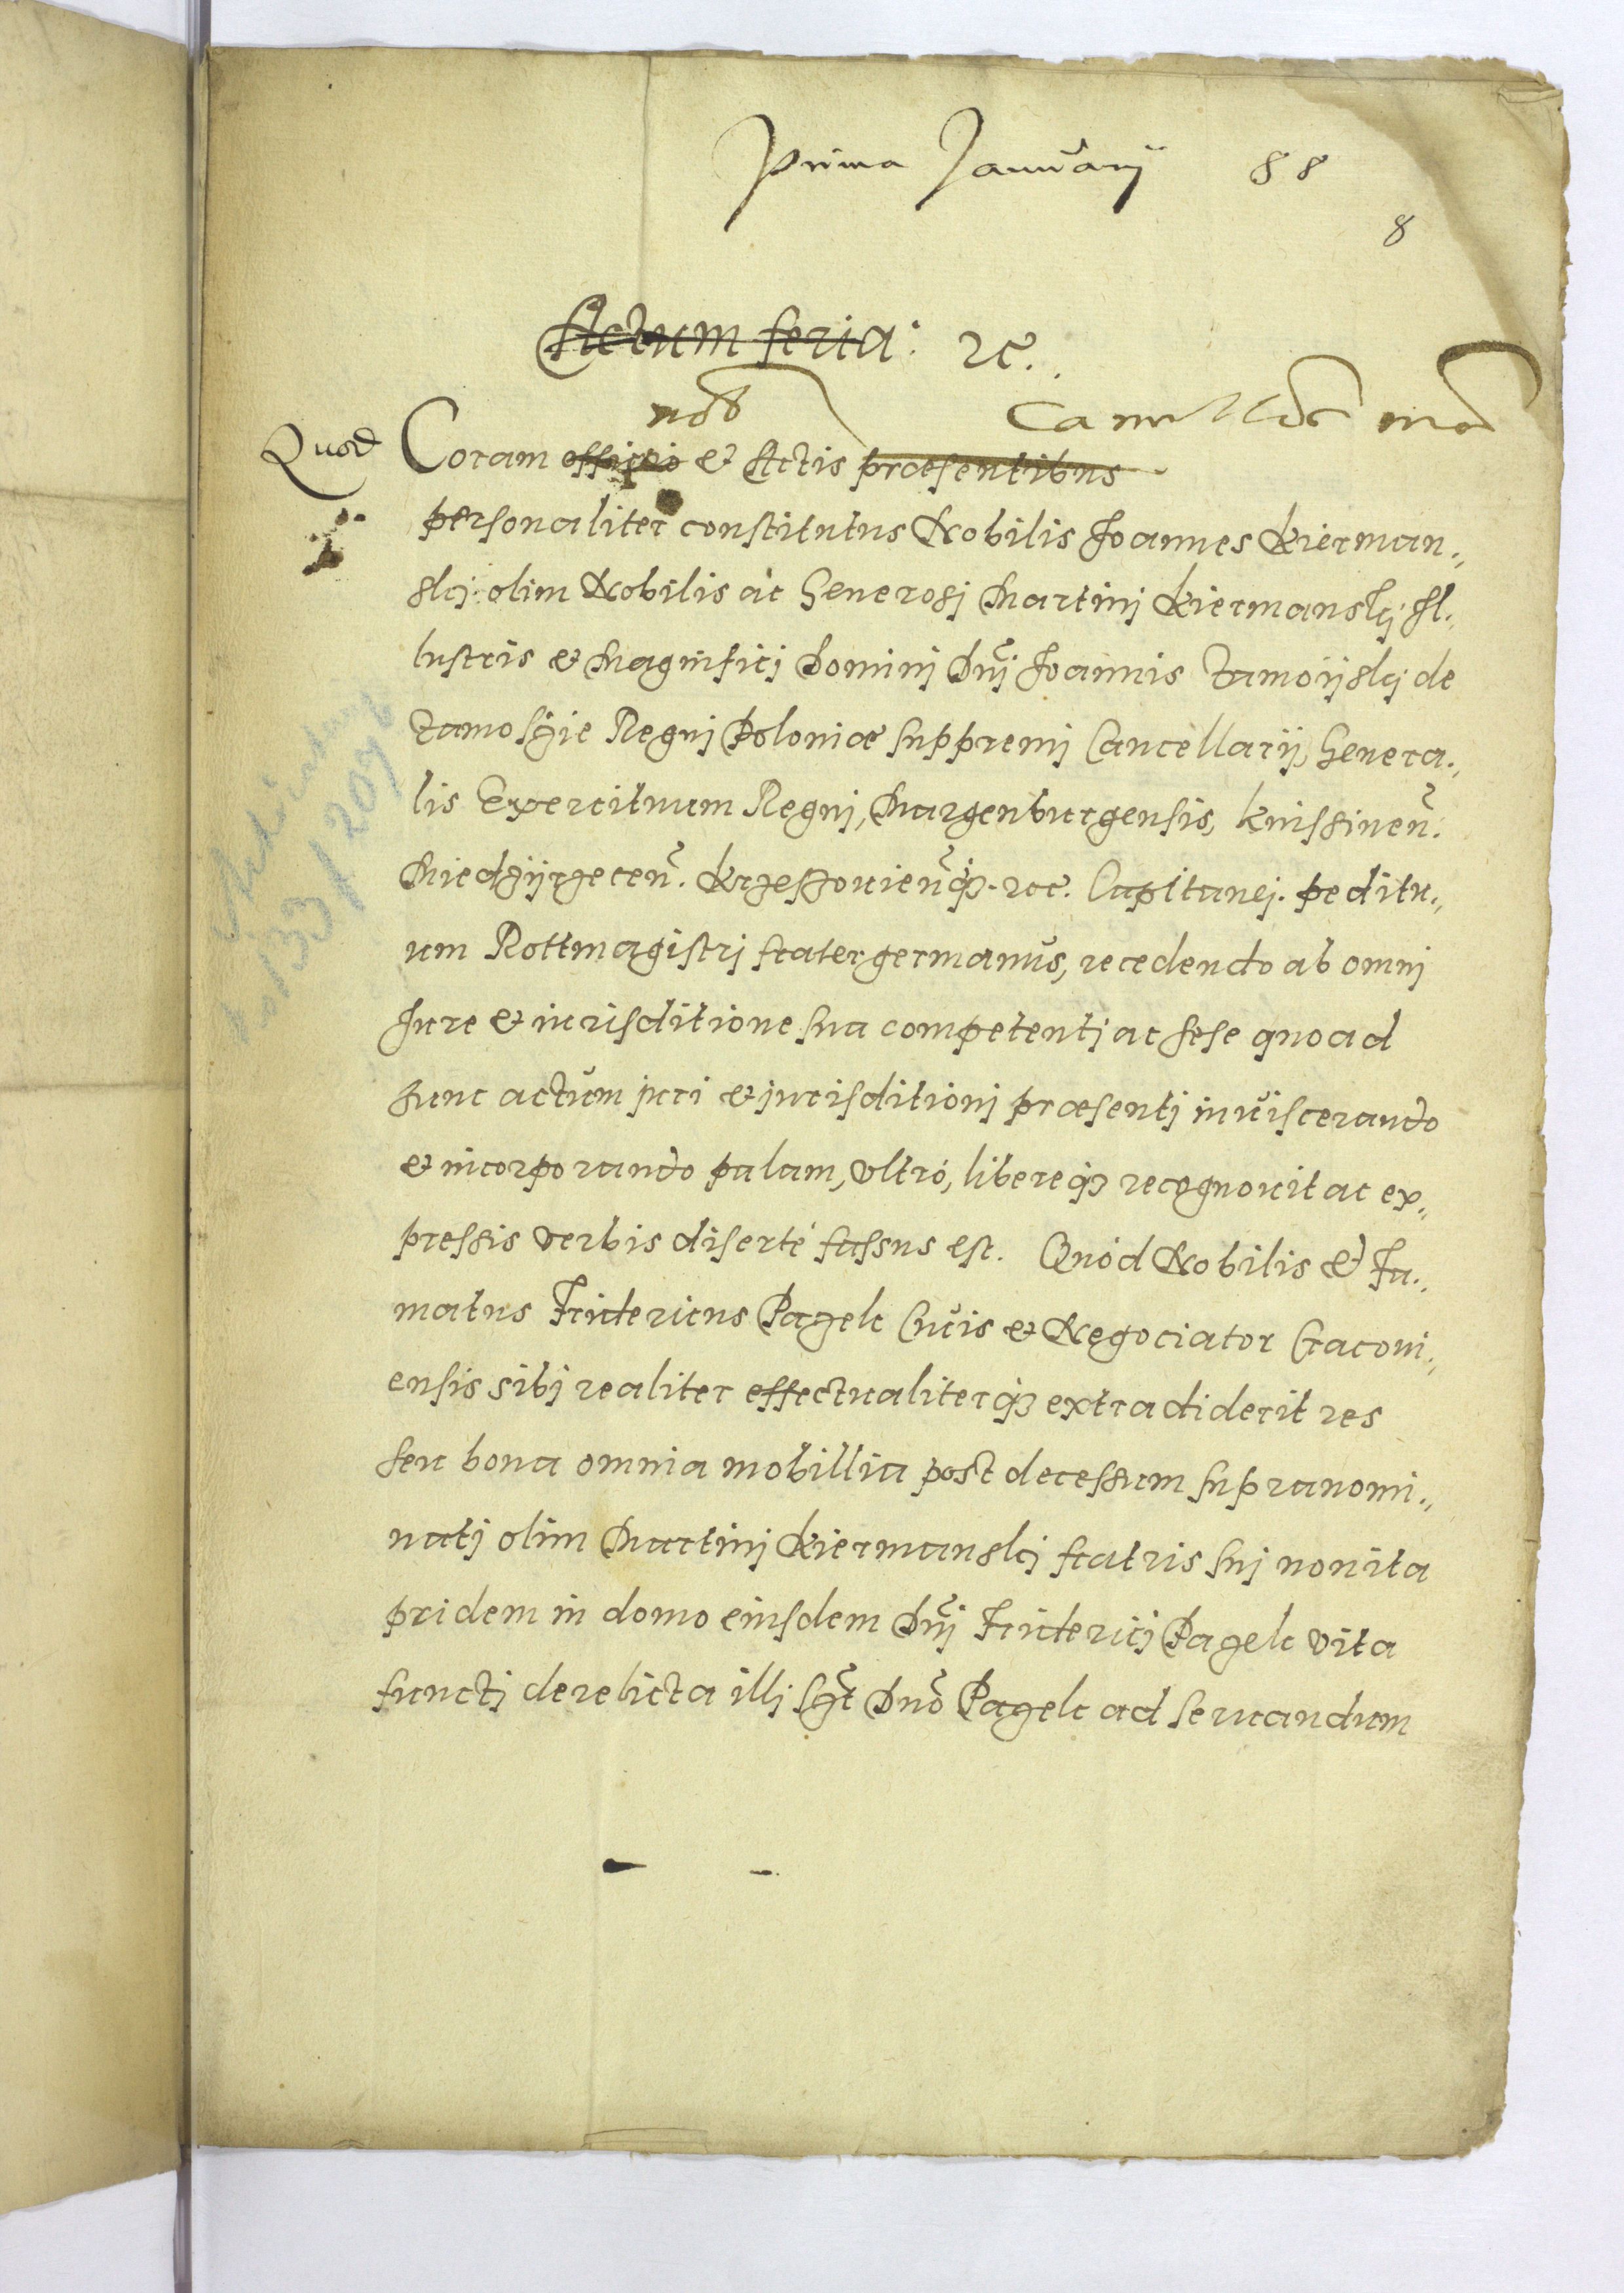 Prima Januarij 88
8
Actum feria: &c.
nob Cancell
Quod Coram officio & Actis præsentibus
personaliter constitutus Nobilis Joannes Kierman„
skj olim Nobilis ac Generosj Martinj Kiermanskj Jl„
lustris & Magnificj Dominj Dnj Joannis Zamoijskj de
Zamosczie Regnj Poloniæ Suppremj Cancellarij, Genera„
lis Exercituum Regnj, Margenburgensis, Knissinen.
Miedzijrzecen. Krzessouienq3 &c. Capitanej. peditu„
um Rottmagistrj frater germanus, recedendo ab omnj
Jure & iurisditione sua competentj ac sese quoad
hunc actum juri & jurisditionj præsentj inuiscerando
& incorporando palam, vltró, libereq3 recognouit ac ex„
pressis verbis diserté fassus est. Quód Nobilis & Fa„
matus Fridericus Pagelc Ciuis & Negociator Cracoui„
ensis sibj realiter effectualiterq3 extradiderit res
seu bona omnia mobillia post decessum supranomi„
natj olim Martinj Kiermanskj fratris suj non ita
pridem in domo eiusdem Dnj Fridericj Pagelc vita
functj derelicta illj sct Dno Pagelc ad seruandum